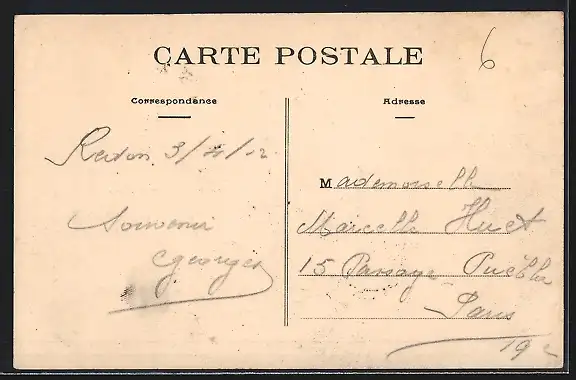 CARTE POSTALE
6
Correspondance
Adresse
Redon 3/4/12
Souvenir
Georges
Mademoiselle
Marcelle Huet
15 Passage Puebla
Paris
19e